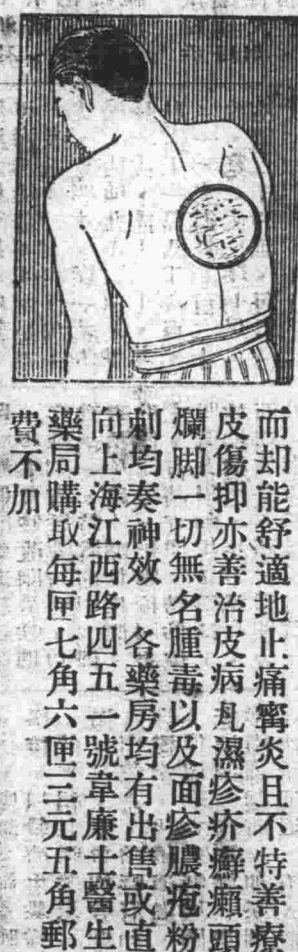 而却能舒適地止痛甯炎且不特善療
皮傷抑亦善治皮病凡濕疹疥癬癩頭
爛脚一切無名腫毒以及面疹膿疱粉
刺均奏神效　各藥房均有出售或直
向上海江西路四五一號韋廉士醫生
藥局購取每匣七角六匣三元五角郵
費不加